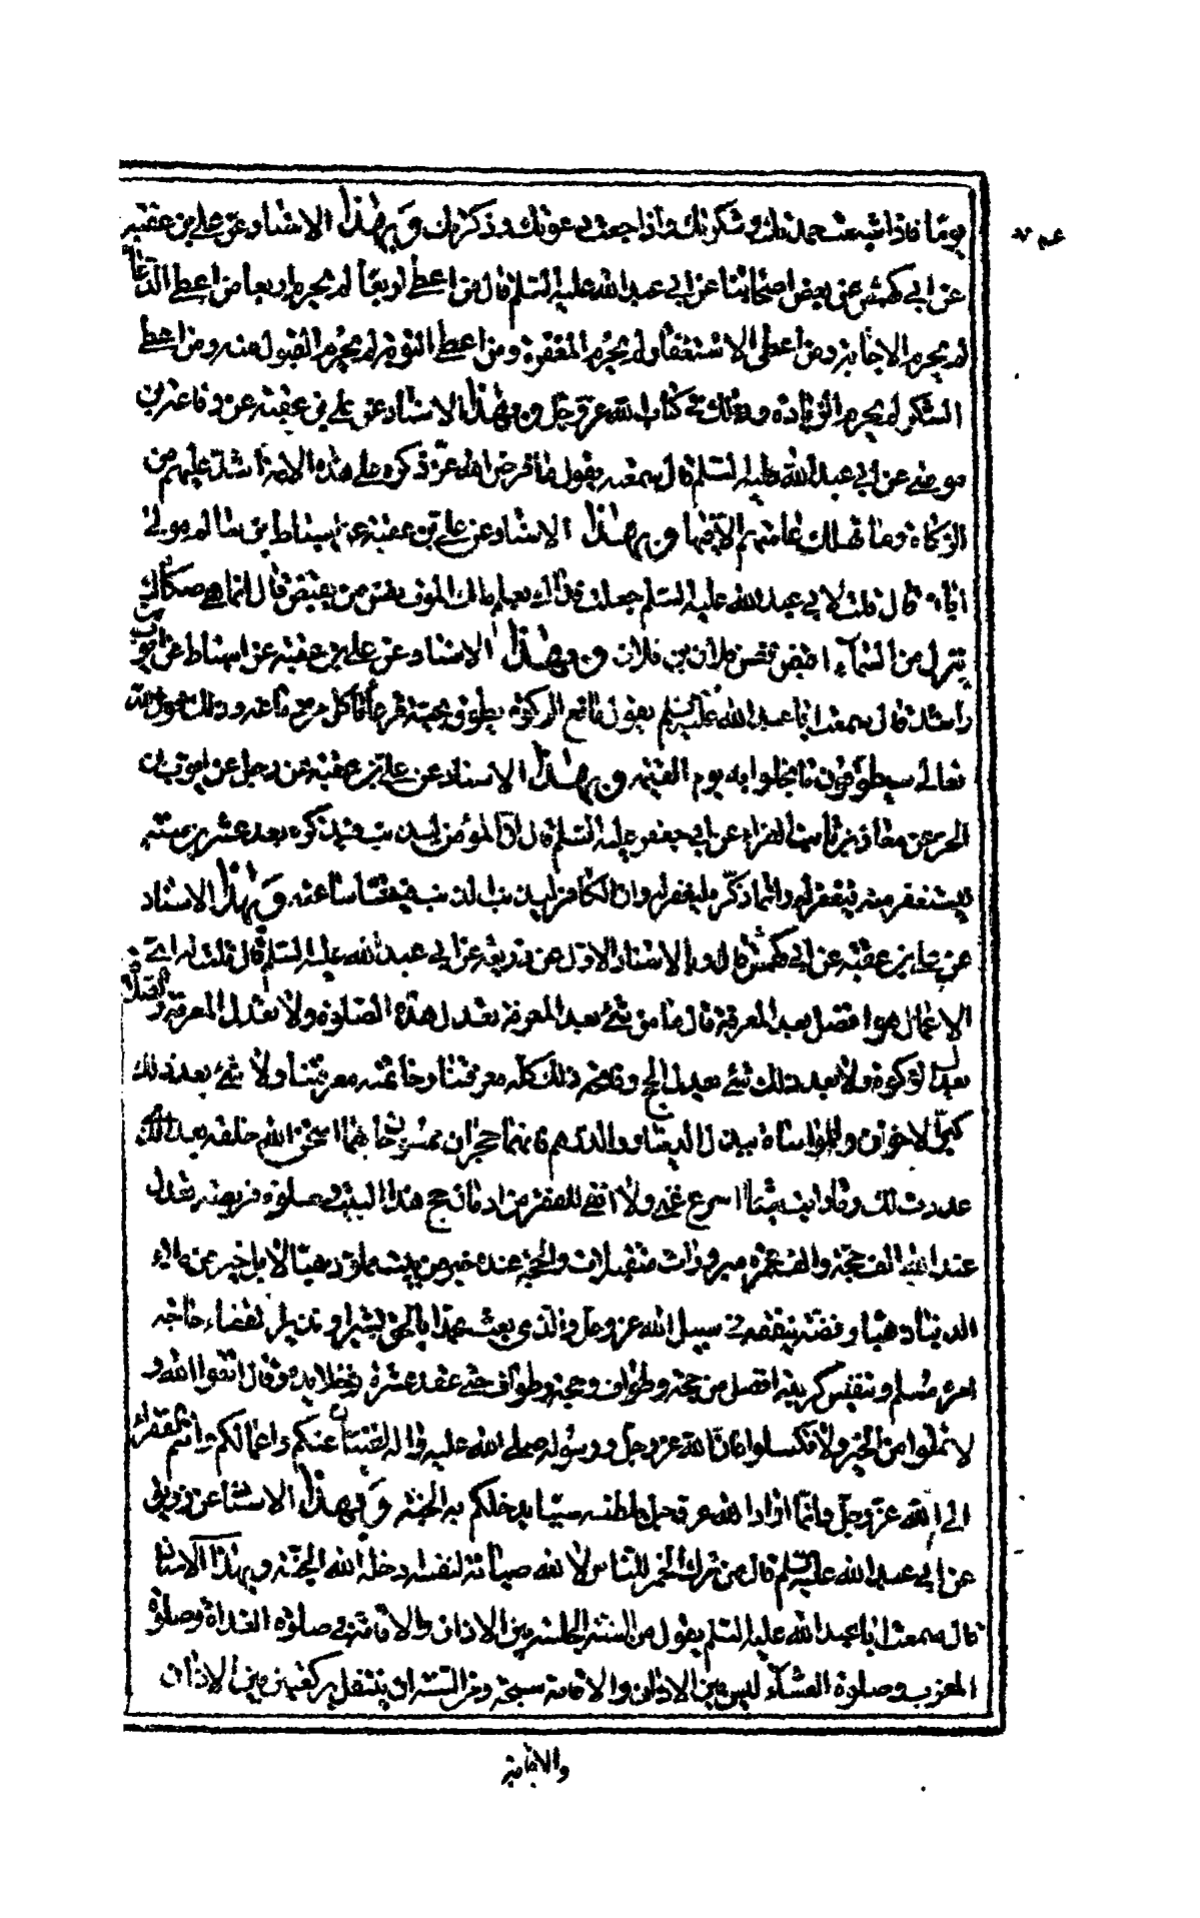 يوما فاذا شبعت حمدتك وشكرتك واذا جعت دعوتك وذكرتك وبهذا الاسناد عن علي بن عقبة
عن ابي كهمش عن بعض اصحابنا عن ابي عبد الله عليه السلم قال من اعطى اربعا لم يحرم اربعا من اعطى الدعاء
لم يحرم الاجابة ومن اعطى الاستغفار لم يحرم المغفرة ومن اعطى التوبة لم يحرم القبول منه ومن اعطى
الشكر لم يحرم الزيادة وذلك في كتاب الله عز وجل وبهذا الاسناد عن علي بن عقبة عن رفاعة بن
موسى عن ابي عبد الله عليه السلم قال سمعته يقول ما فرض الله عز ذكره على هذه الامة اشد عليهم من
الزكاة وما تهلك عامتهم الا فيها وبهذا الاسناد عن علي بن عقبة عن اسباط بن سالم مولى
ابان قال قلت لابي عبد الله عليه السلم جعلت فداك يعلم ملك الموت بقبض من يقبض قال انما هي صكاك
تنزل من السماء اقبض نفس فلان بن فلان وبهذا الاسناد عن علي بن عقبة عن اسباط عن ايوب بن
راشد قال سمعت ابا عبد الله عليه السلم يقول مانع الزكوة يطوق بحية قرعاء تأكل من دماغه وذلك قول الله
تعالى سيطوقون ما بخلوا به يوم القيمة وبهذا الاسناد عن علي بن عقبة عن رجل عن ايوب بن
الحر عن معاذ بن ثابت الفراء عن ابي جعفر عليه السلم قال ان المؤمن ليذنب فيذكره بعد عشرين سنة
فيستغفر منه فيغفر له وانما ذكر ليغفر له وان الكافر ليذنب الذنب فينسا ساعته وبهذا الاسناد
عن علي بن عقبة عن ابي كهمش قال وبالاسناد الاول عن زريق عن ابي عبد الله عليه السلم قال قلت له اي
الاعمال هو افضل بعد المعرفة قال ما من شيء بعد المعرفة يعدل هذه الصلوة ولا بعد المعرفة والصلاة
يعدل الزكوة ولا بعد ذلك شيء يعدل الحج وفاتحة ذلك كله معرفتنا وخاتمته معرفتنا ولا شيء بعد ذلك
كبر الاخوان والمواساة ببذل الدينار والدرهم فانهما حجران ممسوخان بهما امتحن الله خلقه بعد الذي
عددت لك وما رايت شيئا اسرع غنى ولا انفى للفقر من ادمان حج هذا البيت وصلوة فريضة تعدل
عند الله الف حجة والف عمرة مبرورات متقبلات والحجة عنده خير من بيت مملو ذهبا لا بل خير من ملاء
الدنيا ذهبا وفضة ينفقه في سبيل الله عز وجل والذي بعث محمدا بالحق بشيرا ونذيرا لقضاء حاجة
امرء مسلم وتنفيس كربته افضل من حجة وطواف وحجة وطواف حتى عقد عشرة ثم خلا يده وقال اتقوا الله و
لا تملوا من الخير ولا تكسلوا فان الله عز وجل ورسوله صلى الله عليه واله لغنيان عنكم واعمالكم وانتم الفقراء
الى الله عز وجل وانما اراد الله عز وجل بلطفه سببا يدخلكم به الجنة وبهذا الاسناد عن زريق
عن ابي عبد الله عليه السلم قال من ترك الخمر للناس لا لله صيانة لنفسه ادخله الله الجنة وبهذا الاسناد
قال سمعت ابا عبد الله عليه السلم يقول من السنة الجلسة بين الاذان والاقامة في صلوة الغداة وصلوة
المغرب وصلوة العشاء ليس بين الاذان والاقامة سبحة ومن السنة ان يتنفل بركعتين بين الاذان
والاقامة